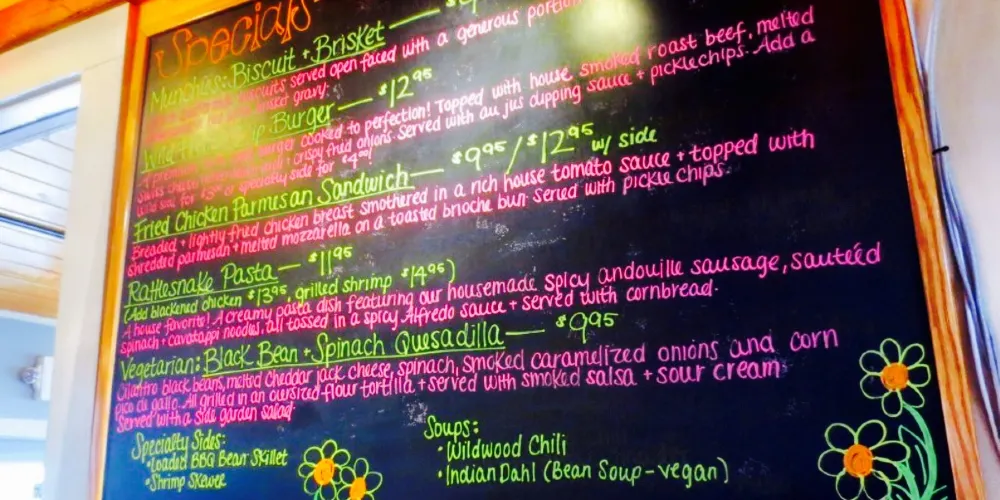 Specials
Munchies: Biscuit + Brisket —
biscuits served open faced with a generous portion
gravy.
Burger — $12.95
burger cooked to perfection! Topped with house smoked roast beef, melted
swiss cheese + crispy fried onions served with au jus dipping sauce + picklechips. Add a
side for or specialty side for $4.00!
Fried Chicken Parmesan Sandwich — $9.95/$12.95 w/ side
Breaded + lightly fried chicken breast smothered in a rich house tomato sauce + topped with
shredded parmesan + melted mozzarella on a toasted brioche bun. Served with pickle chips.
Rattlesnake Pasta — $11.95
(Add blackened chicken $13.95, grilled shrimp $14.95)
A house favorite! A creamy pasta dish featuring our housemade spicy andouille sausage, sautéed
spinach + cavatappi noodles, all tossed in a spicy Alfredo sauce + served with cornbread.
Vegetarian: Black Bean + Spinach Quesadilla — $9.95
Cilantro black beans, melted cheddar jack cheese, spinach, smoked caramelized onions and corn
pico de gallo. All grilled in an oversized flour tortilla + served with smoked salsa + sour cream.
Served with a side garden salad.
Specialty Sides:
•Loaded BBQ Bean Skillet
•Shrimp Skewer
Soups:
•Wildwood Chili
•Indian Dahl (Bean Soup-vegan)